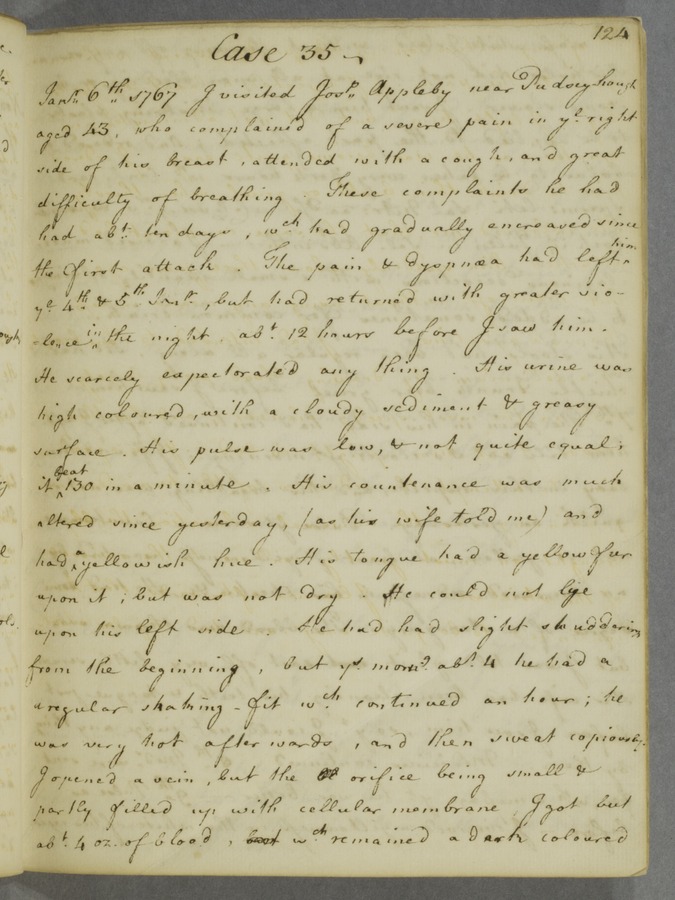 124
Case 35
Janry 6th 1767 I visited Josh Appleby near Pudsey hough
aged 43, who complained of a severe pain in ye right
side of his breast, attended with a cough, and great
difficulty of breathing. These complaints he had
had abt. ten days, wch had gradually encreased since
the first attack. The pain & dyspnœa had left him
ye 4th & 5th Janry, but had returned with greater vio-
-lence in the night, abt 12 hours before I saw him.
He scarcely expectorated any thing. His urine was
high coloured, with a cloudy sediment & greasy
surface. His pulse was low, & not quite equal;
it beat 130 in a minute. His countenance was much
altered since yesterday, (as his wife told me) and
had a yellowish hue. His tongue had a yellow fur
upon it; but was not dry. He could not lye
upon his left side. He had had slight shuddering
from the beginning, but ys morng. abt. 4 he had a
regular shaking-fit wch continued an hour; he
was very hot afterwards, and then sweat copiously.
I opened a vein, but the orifice being small &
partly filled up with cellular membrane, I got but
abt. 4 oz. of blood, but wch remained a dark coloured